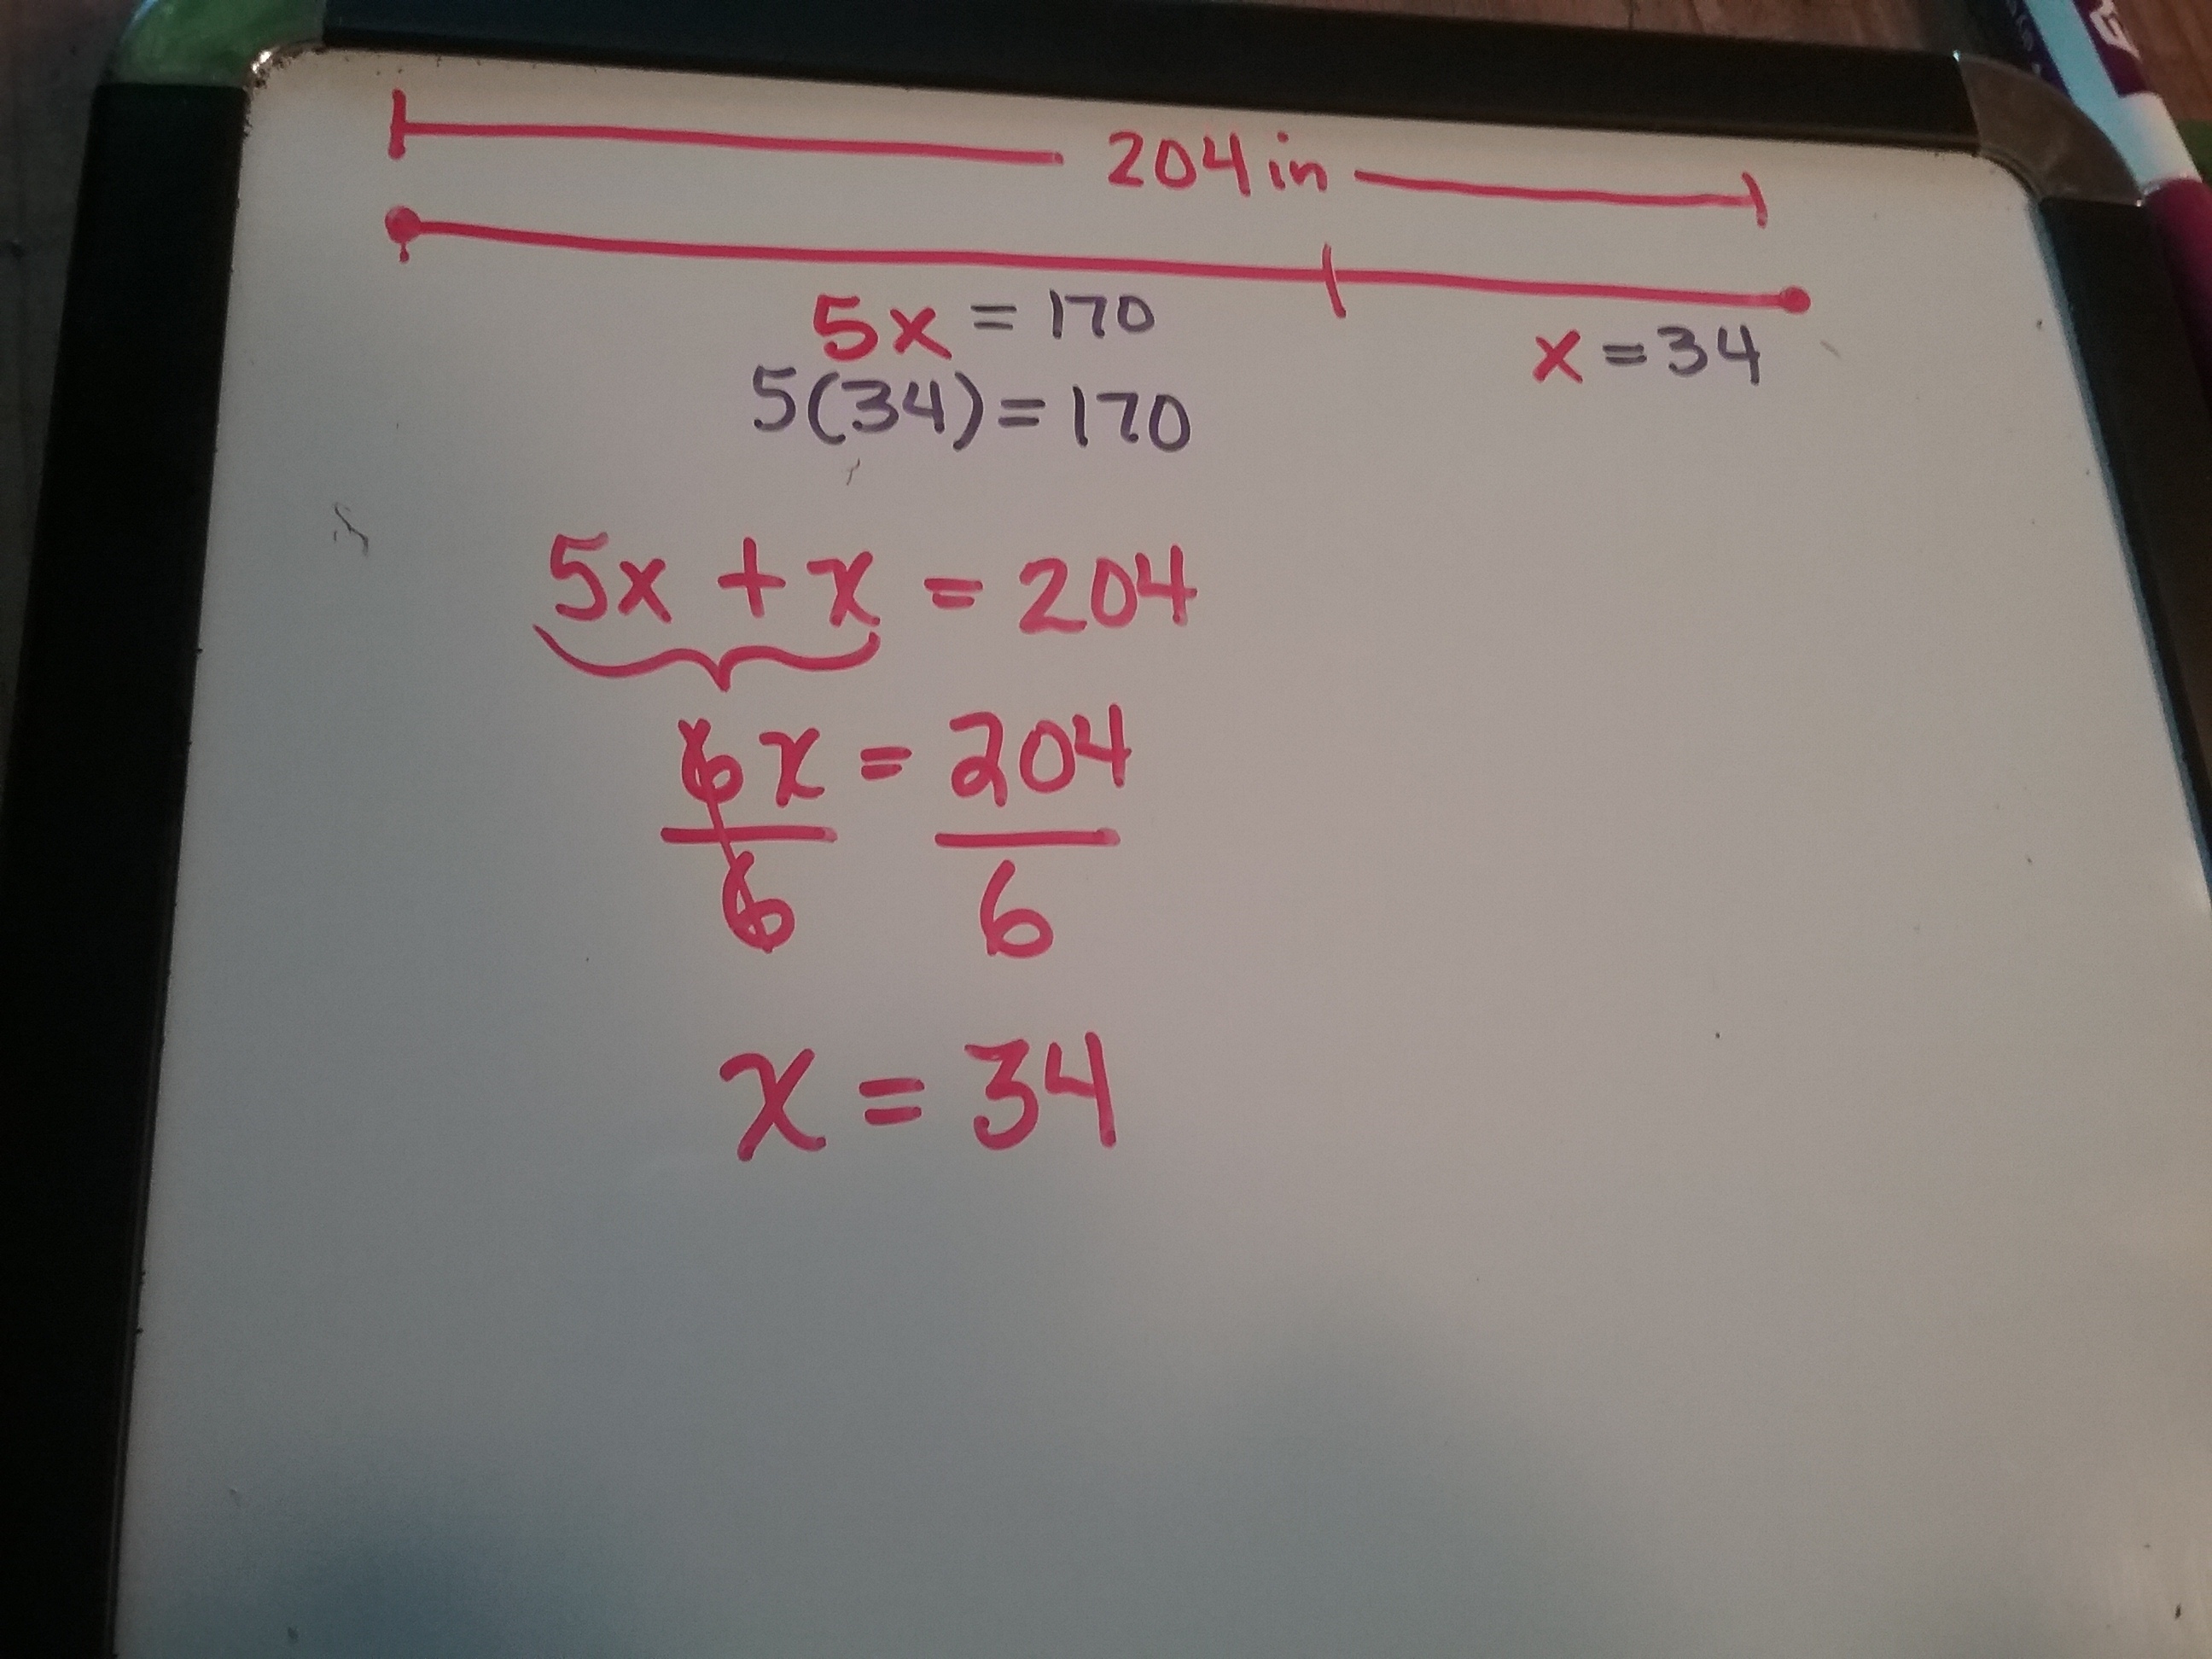 204 in
5x = 170
x = 34
5(34) = 170
5x + x = 204
6x = 204
6 6
x = 34